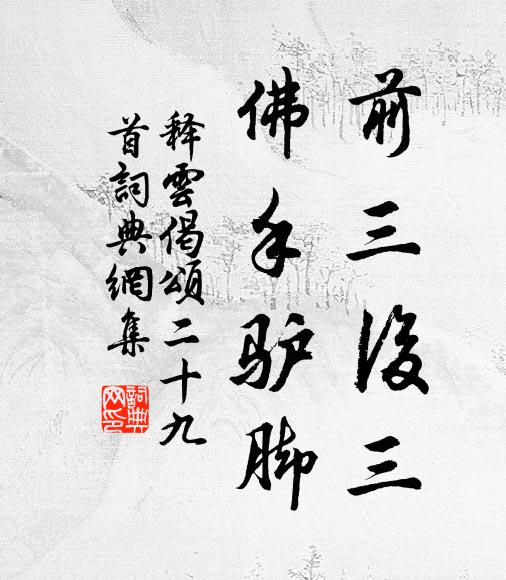 前三後三
佛手驴脚
释雲偈頌二十九
首詞典網集
詞典
网印